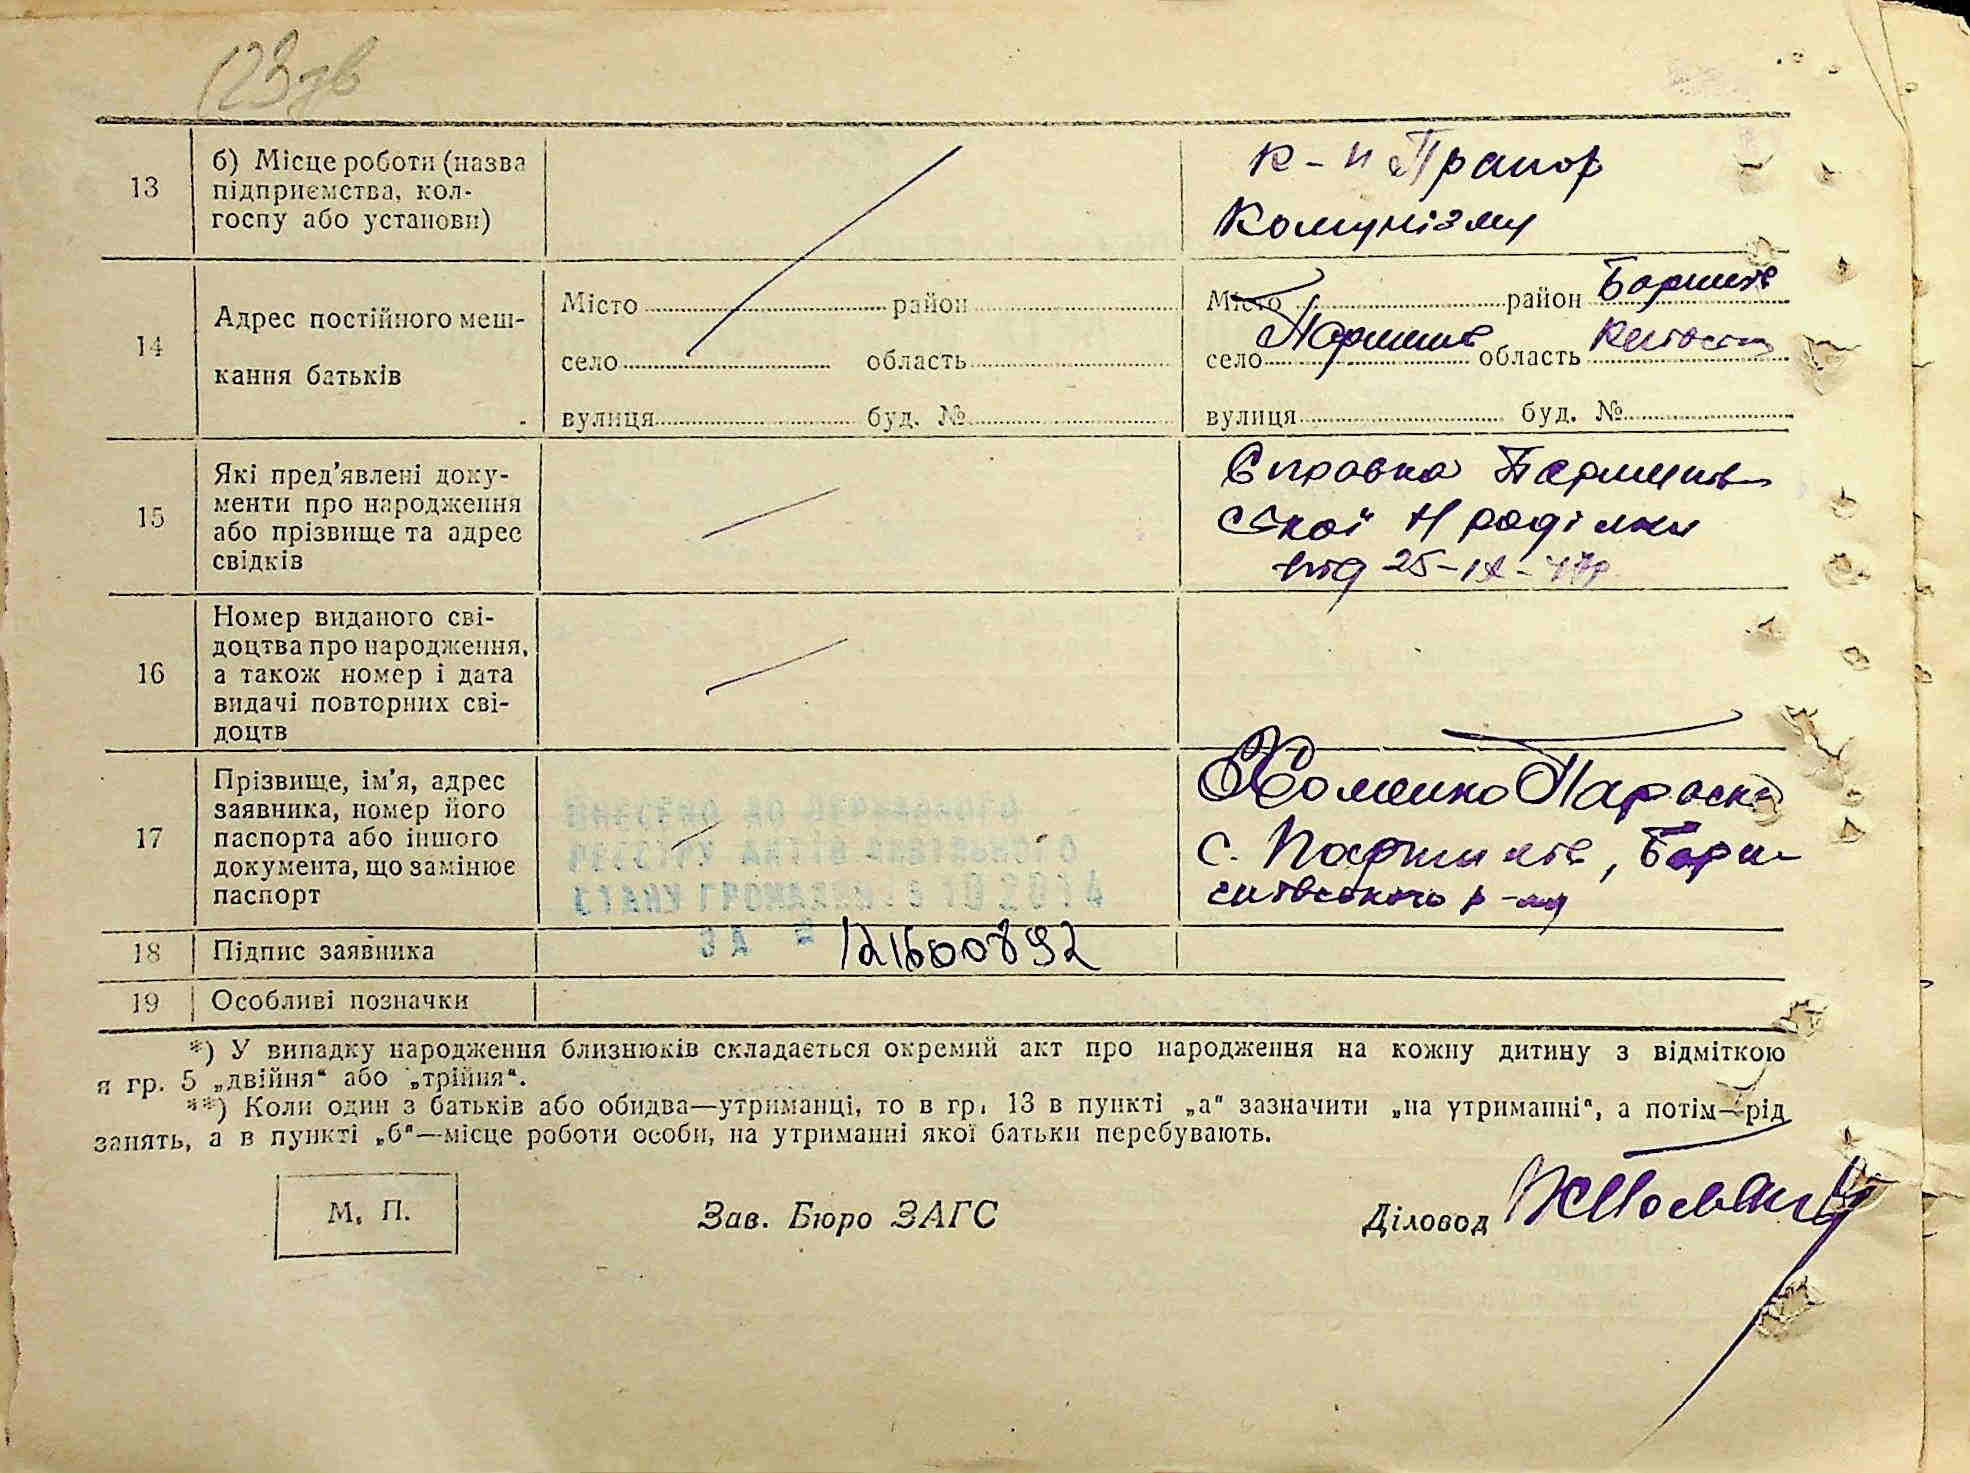 123зв
13 б) Місце роботи (назва підприємства, колгоспу або установи)
к-п Прапор
Комунізму
14 Адрес постійного мешкання батьків
Місто район
село область
вулиця буд. №
Місто район Баришів
село Паришків область Київськ
вулиця буд. №
15 Які пред'явлені документи про народження або прізвище та адрес свідків
Справка Паришків-
ської роділки
від 25-IX-47р
16 Номер виданого свідоцтва про народження, а також номер і дата видачі повторних свідоцтв
17 Прізвище, ім'я, адрес заявника, номер його паспорта або іншого документа, що замінює паспорт
ВНЕСЕНО ДО ДЕРЖАВНОГО
РЕЄСТРУ АКТІВ ЦИВІЛЬНОГО
СТАНУ ГРОМАДЯН 10 2014
ЗА № 121600892
Хоменко Параска
с. Паришків, Бари-
шівського р-ну
18 Підпис заявника
19 Особливі позначки
*) У випадку народження близнюків складається окремий акт про народження на кожну дитину з відміткою
я гр. 5 „двійня“ або „трійня“.
**) Коли один з батьків або обидва—утриманці, то в гр. 13 в пункті „а“ зазначити „на утриманні“, а потім—рід
занять, а в пункті „б“—місце роботи особи, на утриманні якої батьки перебувають.
М. П. Зав. Бюро ЗАГС Діловод